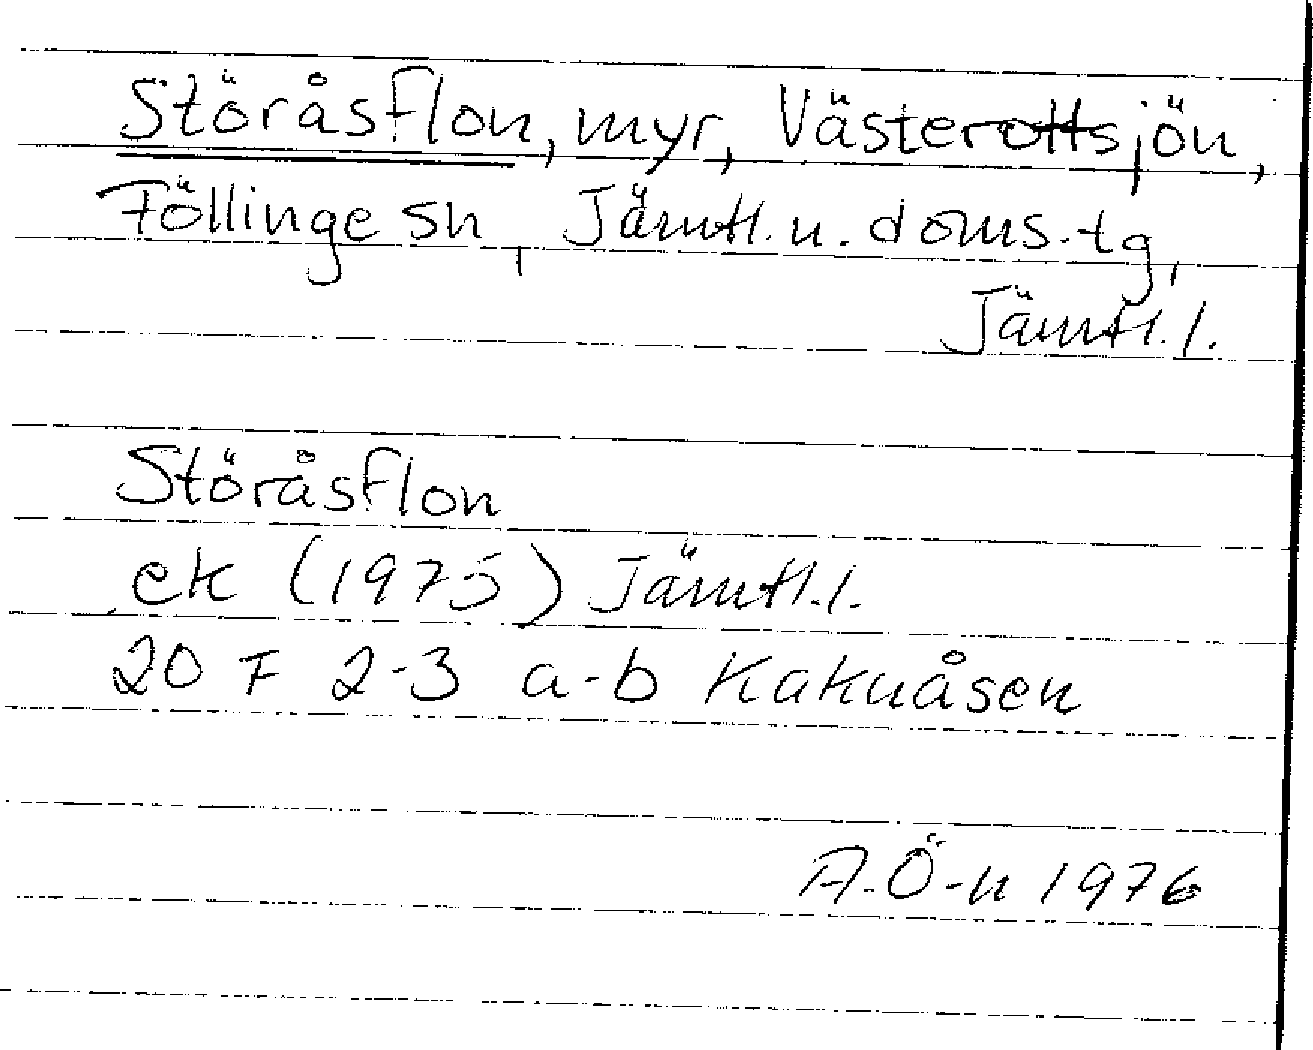 Störåsflon, myr, Västerottsjön,
Föllinge sn, Jämtl. n. doms. tg,
Jämtl. l.
Störåsflon
ek (1975) Jämtl. l.
20 F 2-3 a-b Kaknåsen
A. Ö-n 1976